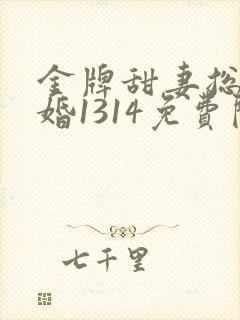 金牌甜妻总
婚1314免費
七千里